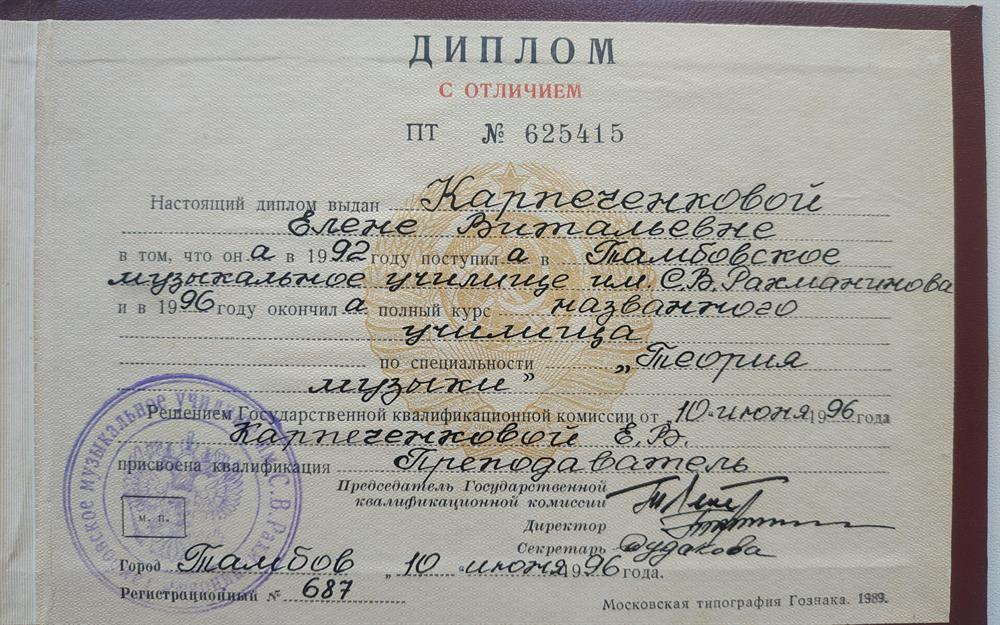 ДИПЛОМ
С ОТЛИЧИЕМ
ПТ № 625415
Настоящий диплом выдан Карпеченковой
Елене Витальевне
в том, что он а в 1992 году поступил а в Тамбовское
музыкальное училище им. С.В. Рахманинова
и в 1996 году окончил а полный курс названного
училища
по специальности „Теория
музыки”
Решением Государственной квалификационной комиссии от „10 " июня 1996 года
Карпеченковой Е.В.
присвоена квалификация Преподаватель
Председатель Государственной
квалификационной комиссии
Директор
Секретарь Дудакова
м. п.
Город Тамбов „ 10 " июня 1996 года.
Регистрационный № 687
Московская типография Гознака. 1989.
музыкальное училище им. С.В. Рах